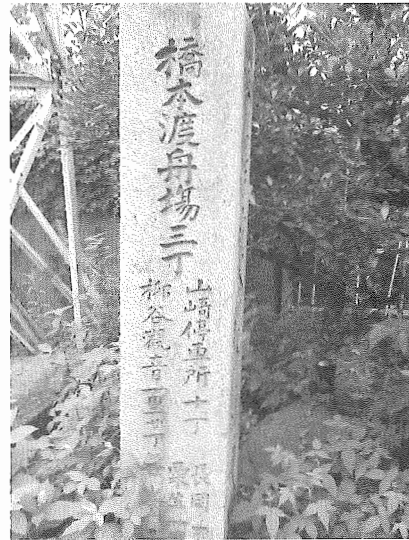 橋本渡舟場三丁
山崎停車所十丁 長岡
柳谷観音一里